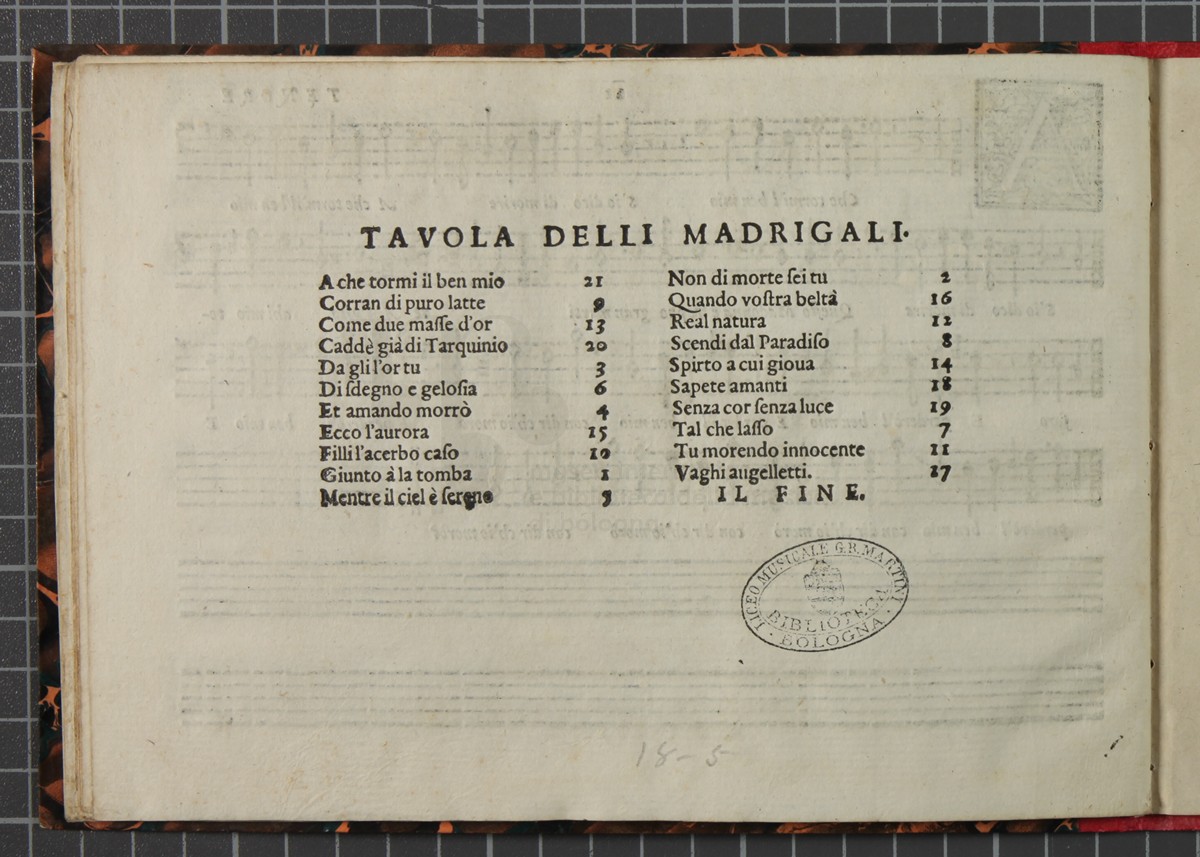 TAVOLA DELLI MADRIGALI.
A che tormi il ben mio 21
Corran di puro latte 9
Come due maſſe d'or 13
Caddè già di Tarquinio 20
Da gli l'or tu 3
Di ſdegno e geloſia 6
Et amando morrò 4
Ecco l'aurora 15
Filli l'acerbo caſo 10
Giunto à la tomba 1
Mentre il ciel è ſereno 5
Non di morte ſei tu 2
Quando voſtra beltà 16
Real natura 12
Scendi dal Paradiſo 8
Spirto a cui gioua 14
Sapete amanti 18
Senza cor ſenza luce 19
Tal che laſſo 7
Tu morendo innocente 11
Vaghi augelletti. 17
IL FINE.
LICEO MUSICALE G.B. MARTINI
BIBLIOTECA
BOLOGNA
18-5